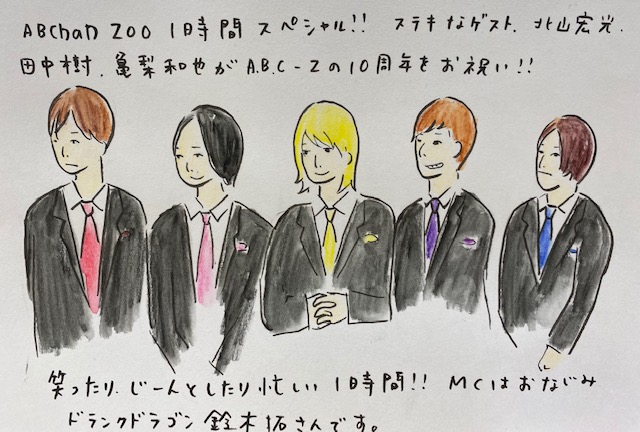 ABChanZOO 1時間スペシャル!! ステキなゲスト、北山宏光、
田中樹、亀梨和也がA.B.C-Zの10周年をお祝い!!
笑ったり、じーんとしたり忙しい1時間!! MCはおなじみ
ドランクドラゴン 鈴木拓さんです。